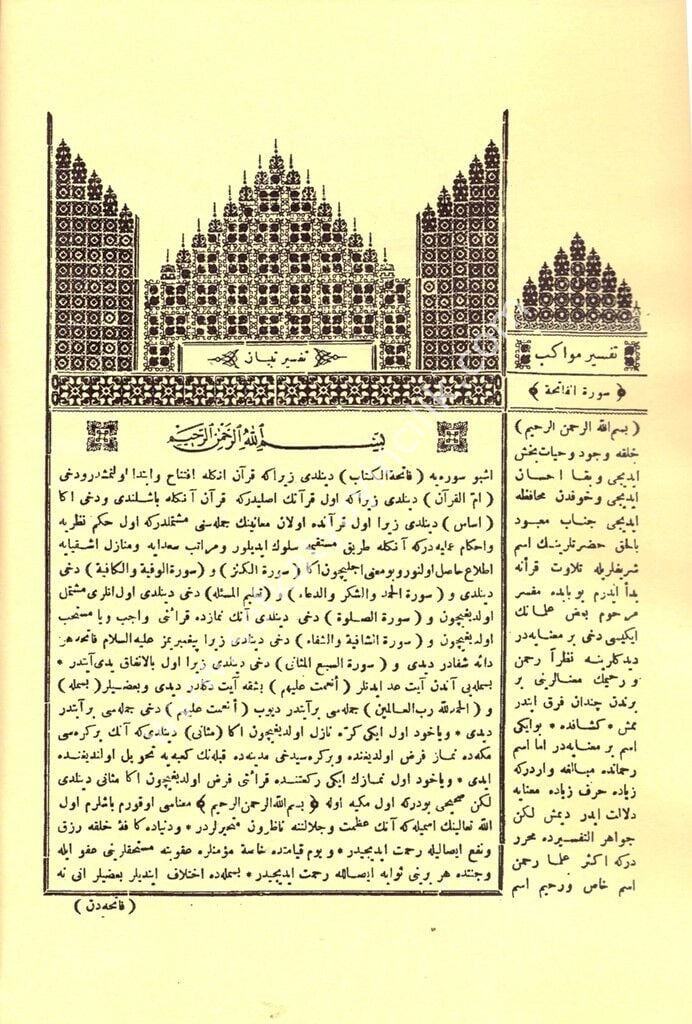 تفسير تبيان
بسم الله الرحمن الرحيم
اشبو سوره يه ( فاتحة الكتاب ) دينلدى زيرا كه قرآن انكله افتتاح وابتدا اولنمشدر ودخى
( ام القرآن ) دينلدى زيرا كه اول قرآنك اصليدر كه قرآن آنكله باشلندى ودخى اكا
( اساس ) دينلدى زيرا اول قرآنده اولان معانينك جمله سنى مشتملدر كه اول حكم نظريه
واحكام عمليه در كه آنكله طريق مستقيمه سلوك ايديلور ومراتب سعدايه ومنازل اشقيايه
اطلاع حاصل اولنور وبو معنى اجليچون اكا ( سورة الكنز ) و ( سورة الوفية والكافية ) دخى
دينلدى و ( سورة الحمد والشكر والدعاء ) و ( تعليم المسئله ) دخى دينلدى اول انلرى مشتمل
اولديغيچون و ( سورة الصلوة ) دخى دينلدى آنك نمازده قرائتى واجب ويا مستحب
اولديغيچون و ( سورة الشافية والشفاء ) دخى دينلدى زيرا پيغمبريمز عليه السلام فاتحه هر
دائه شفادر ديدى و ( سورة السبع المثانى ) دخى دينلدى زيرا اول بالاتفاق يدى آيتدر *
بسمله يى آندن آيت عد ايدنلر ( أنعمت عليهم ) بشقه آيت دكلدر ديدى وبعضيلر ( بسمله )
و ( الحمد لله رب العالمين ) جمله سى بر آيتدر ديوب ( أنعمت عليهم ) دخى جمله سى بر آيتدر
ديدى * وياخود اول ايكى كره نازل اولديغيچون اكا ( مثانى ) دينلدى كه آنك بر كره سى
مكه ده نماز فرض اولديغنده وبر كره سيدخى مدينه ده قبله نك كعبه يه تحويل اولنديغنده
ايدى * وياخود اول نمازك ايكى ركعتنده قرائتى فرض اولديغيچون اكا مثانى دينلدى
لكن صحيحى بودر كه اول مكيه اوله ﴿ بسم الله الرحمن الرحيم ﴾ معناسى اوقورم باشلرم اول
الله تعالينك اسميله كه آنك عظمت وجلالنه ناظرون متحيرلردر * ودنياده كافۀ خلقه رزق
ونفع ايصاليله رحمت ايديجيدر * و يوم قيامتده خاصة مؤمنلره عقوبته مستحقلرينى عفو ايله
وجنتده هر برينى ثوابه ايصاله رحمت ايديجيدر * بسمله ده اختلاف ايتديلر بعضيلر انى نه
( فاتحه دن )
تفسير مواكب
﴿ سورة الفاتحة ﴾
( بسم الله الرحمن الرحيم )
خلقه وجود وحيات بخش
ايديجى وبقا احسان
ايديجى وخوفدن محافظه
ايديجى جناب معبود
بالحق حضرتلرينك اسم
شريفلريله تلاوت قرآنه
بدأ ايدرم بوبابده مفسر
مرحوم بعض علمانك
ايكيسى دخى بر معنايه در
ديدكلرينه نظراً رحمن
و رحيمك معنالرينى بر
برندن چندان فرق ايتدر
ممش * كشافده * بوايكى
اسم بر معنايه در اما اسم
رحمانده مبالغه واردر كه
زياده حرف زياده معنايه
دلالت ايدر ديمش لكن
جواهر التفسيرده محرر
در كه اكثر علما رحمن
اسم خاص ورحيم اسم